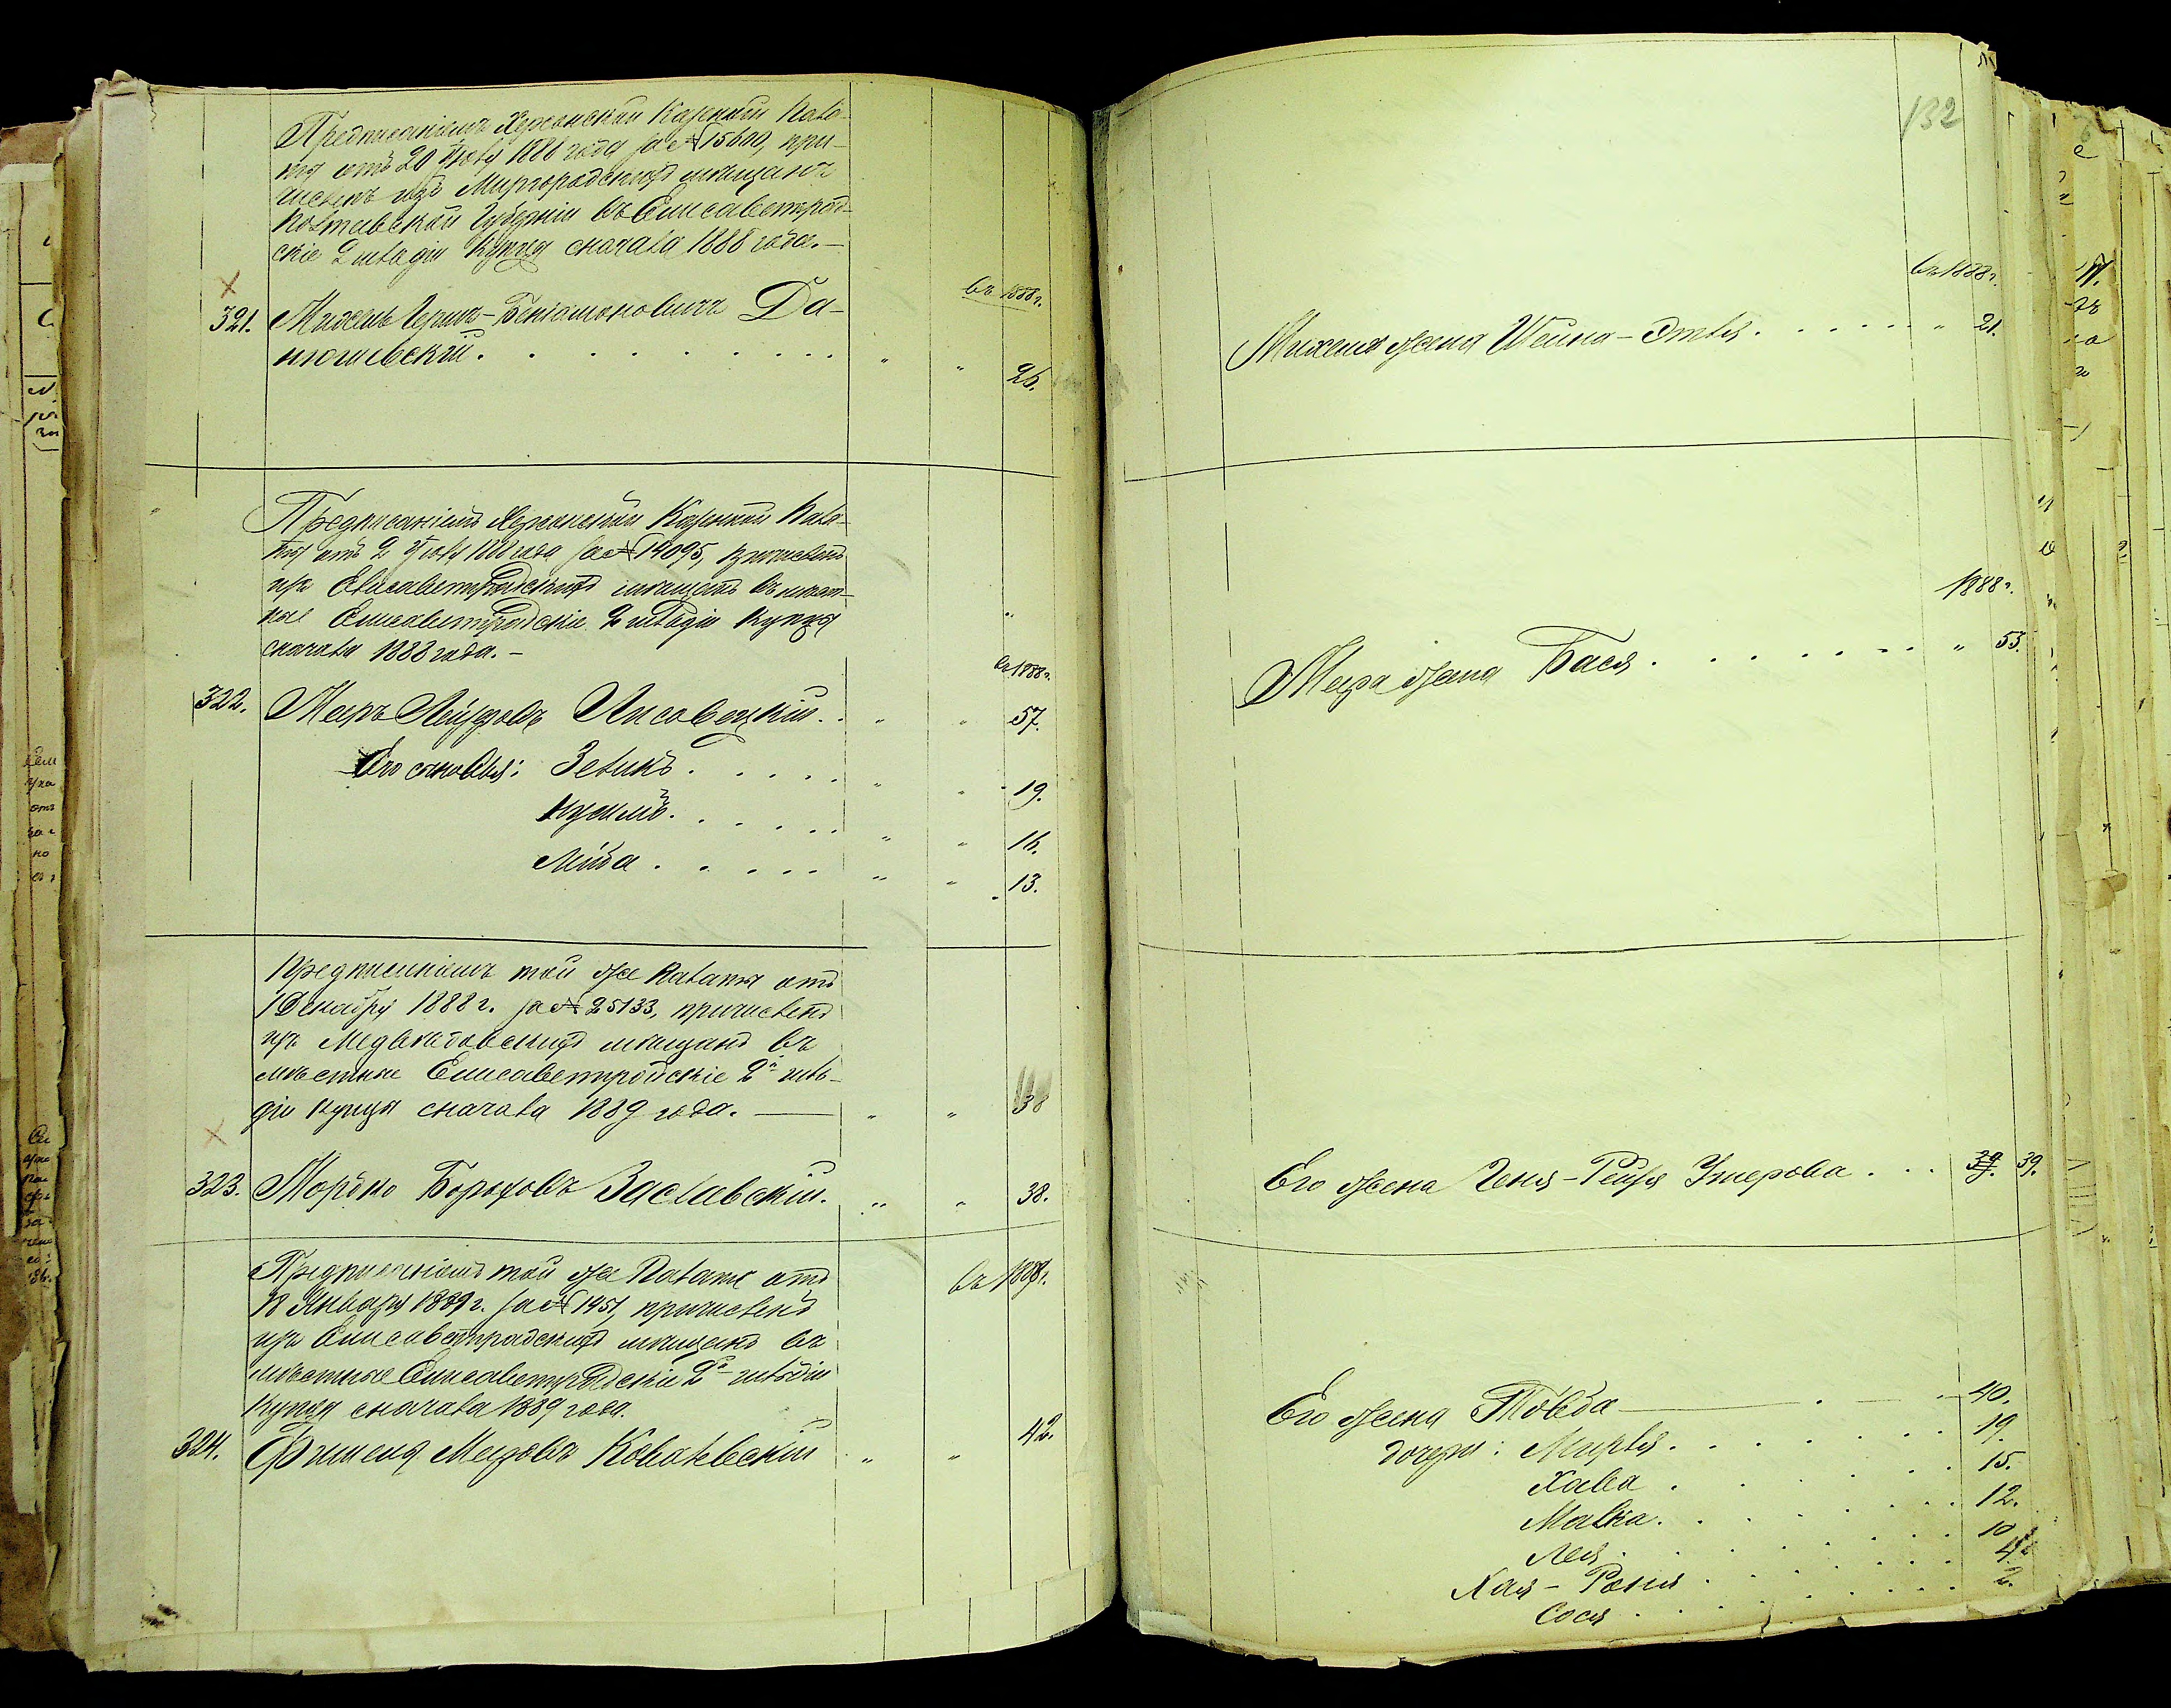 Предписаніемъ Херсонской Казенной Пала-
ты отъ 20 Іюля 1888 года за № 15600, при-
численъ изъ Миргородскихъ мѣщанъ
Полтавской Губерніи въ Елисаветград-
скіе 2 гильдіи Купцы сначала 1888 года.—
въ 1888 г.
321. Михель Герш-Беніаминовичъ Да-
нюшевскій . . . . . . . . . " " 26.
Предписаніемъ Херсонской Казенной Пала-
ты отъ 2 Іюля 1888 года за № 14095, причисленъ
изъ Елисаветградскихъ мѣщанъ въ мѣст-
ные Елисаветградскіе 2 гильдіи Купцы
сначала 1888 года.—
въ 1888 г.
322. Меръ Лейзеровъ Лисовецкій . . " " 57.
Его сыновья: Зеликъ . . . . . " " 19.
Нусимъ . . . . . . " " 16.
Лейба . . . . . " " 13.
Предписаніемъ той же Палаты отъ
1 Декабря 1888 г. за № 25133, причисленъ
изъ Медвѣдовскихъ мѣщанъ въ
мѣстные Елисаветградскіе 2й гиль-
діи Купцы сначала 1889 года. — " " 38
323. Мордко Бороховъ Заславскій. " " 38.
Предписаніемъ той же Палаты отъ
18 Января 1889 г. за № 1451, причисленъ
изъ Елисаветградскихъ мѣщанъ въ
мѣстные Елисаветградскіе 2й гильдіи
Купцы сначала 1889 года.
въ 1889 г.
324. Фишель Мееровъ Ковалевскій " " 42.
132
въ 1888 г.
Михеля жена Шейна-Этля . . . . . . " 21.
1888 г.
Мера жена Бася . . . . . . . " 53.
Его жена Геня-Рейзя Умерова . . . 39. 39.
Его жена Товба — 40.
дочери: Мирля . . . . . . . 19.
Хава . . . . . 15.
Малка . . . . . . . 12.
Лея . . . . . . . 10
Хая-Роня . . . . . . . 4
Сося . . . . . . . 2.